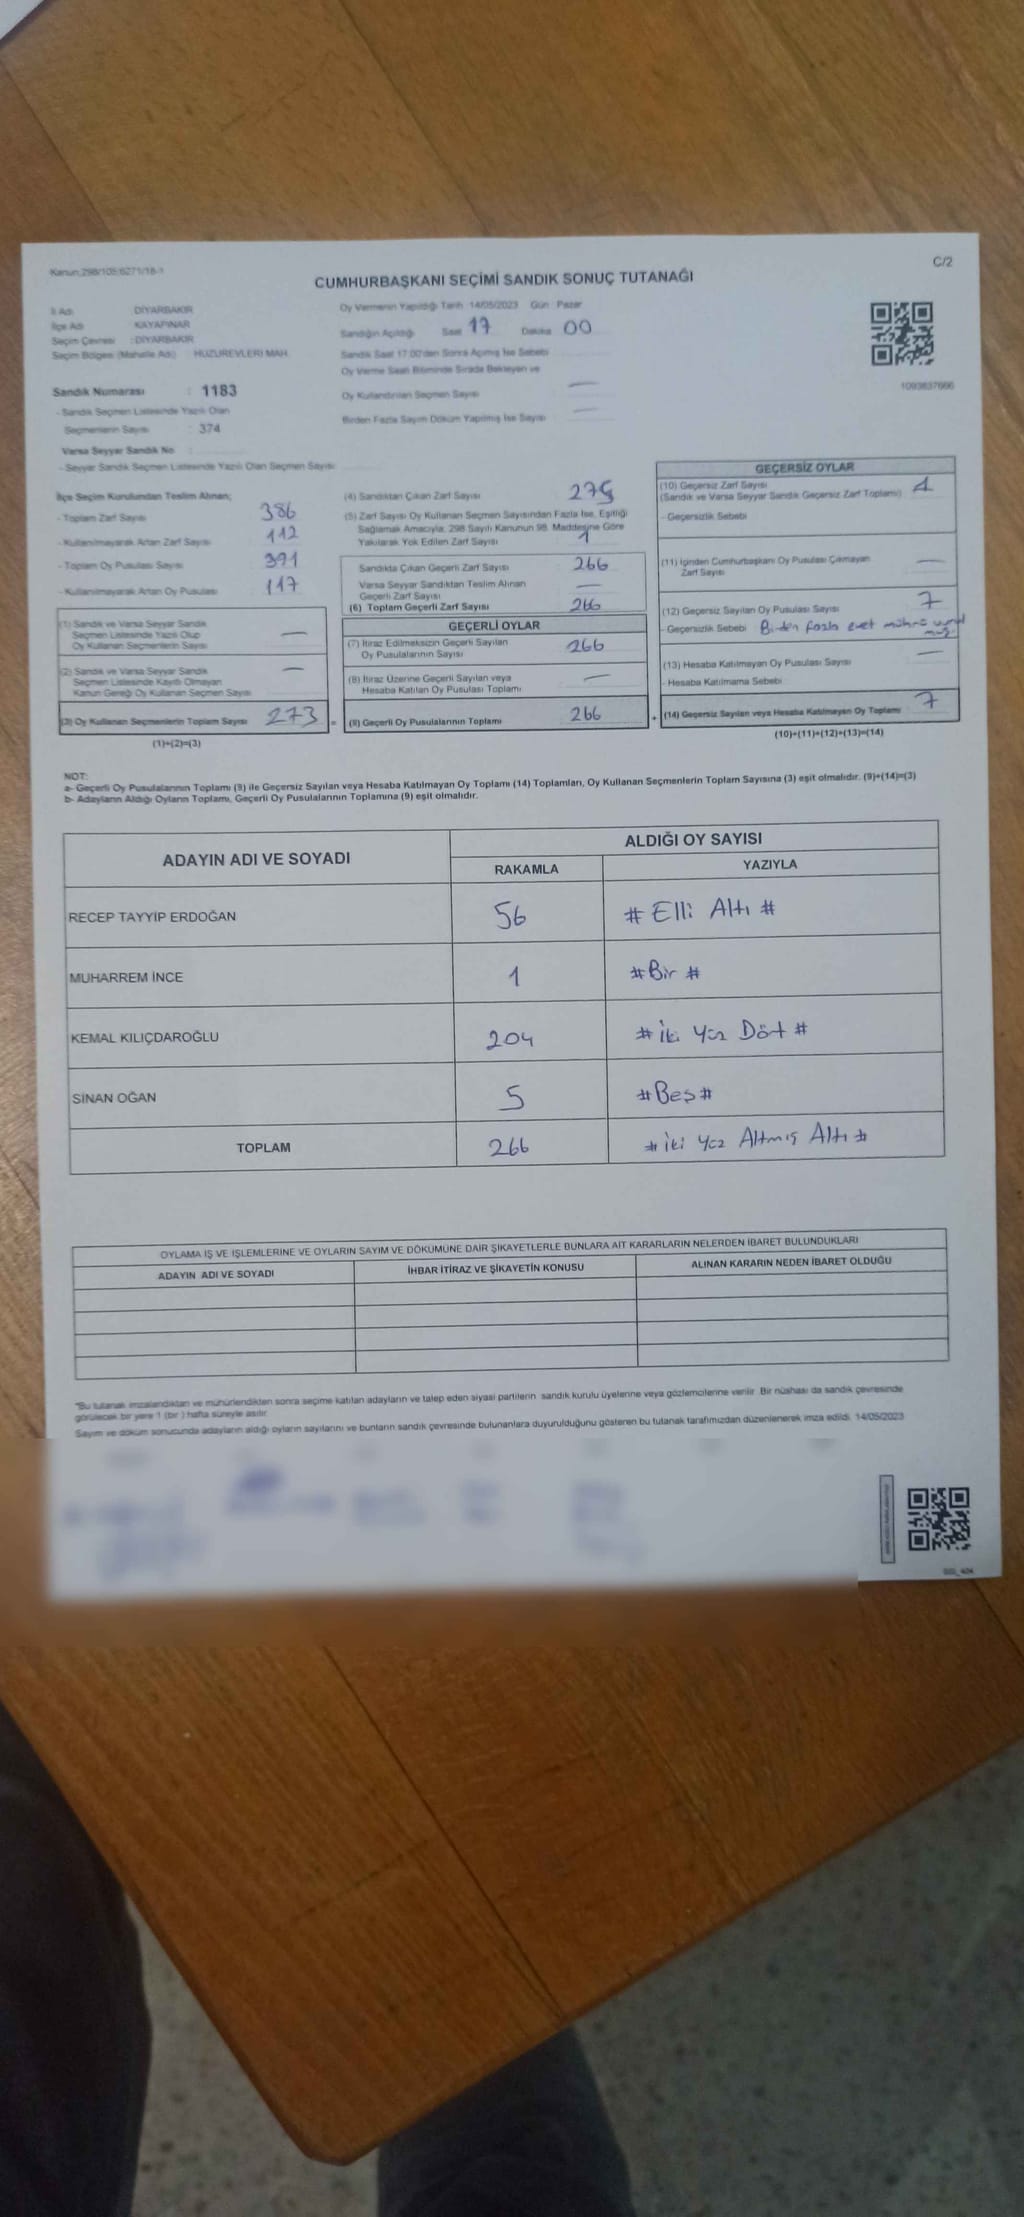 Kanun:298/105;6271/18-1
C/2
CUMHURBAŞKANI SEÇİMİ SANDIK SONUÇ TUTANAĞI
İl Adı DİYARBAKIR
İlçe Adı KAYAPINAR
Seçim Çevresi : DİYARBAKIR
Seçim Bölgesi (Mahalle Adı) HUZUREVLERİ MAH.
Oy Vermenin Yapıldığı Tarih 14/05/2023 Gün Pazar
Sandığın Açıldığı Saat 17 Dakika 00
Sandık Saat 17.00'den Sonra Açılmış İse Sebebi
Oy Verme Saati Bitiminde Sırada Bekleyen ve
Oy Kullandırılan Seçmen Sayısı —
Birden Fazla Sayım Döküm Yapılmış İse Sayısı —
1093637666
Sandık Numarası : 1183
- Sandık Seçmen Listesinde Yazılı Olan
Seçmenlerin Sayısı : 374
Varsa Seyyar Sandık No :
- Seyyar Sandık Seçmen Listesinde Yazılı Olan Seçmen Sayısı
İlçe Seçim Kurulundan Teslim Alınan;
- Toplam Zarf Sayısı 386
- Kullanılmayarak Artan Zarf Sayısı 112
- Toplam Oy Pusulası Sayısı 391
- Kullanılmayarak Artan Oy Pusulası 117
(1) Sandık ve Varsa Seyyar Sandık
Seçmen Listesinde Yazılı Olup
Oy Kullanan Seçmenlerin Sayısı —
(2) Sandık ve Varsa Seyyar Sandık
Seçmen Listesinde Kayıtlı Olmayan
Kanun Gereği Oy Kullanan Seçmen Sayısı —
(3) Oy Kullanan Seçmenlerin Toplam Sayısı 273 =
(1)+(2)=(3)
(4) Sandıktan Çıkan Zarf Sayısı
(5) Zarf Sayısı Oy Kullanan Seçmen Sayısından Fazla İse, Eşitliği
Sağlamak Amacıyla, 298 Sayılı Kanunun 98. Maddesine Göre
Yakılarak Yok Edilen Zarf Sayısı 1
Sandıkta Çıkan Geçerli Zarf Sayısı 266
Varsa Seyyar Sandıktan Teslim Alınan
Geçerli Zarf Sayısı —
(6) Toplam Geçerli Zarf Sayısı 266
GEÇERLİ OYLAR
(7) İtiraz Edilmeksizin Geçerli Sayılan
Oy Pusulalarının Sayısı 266
(8) İtiraz Üzerine Geçerli Sayılan veya
Hesaba Katılan Oy Pusulası Toplamı —
(9) Geçerli Oy Pusulalarının Toplamı 266 +
GEÇERSİZ OYLAR
(10) Geçersiz Zarf Sayısı
(Sandık ve Varsa Seyyar Sandık Geçersiz Zarf Toplamı)
- Geçersizlik Sebebi
(11) İçinden Cumhurbaşkanı Oy Pusulası Çıkmayan
Zarf Sayısı —
(12) Geçersiz Sayılan Oy Pusulası Sayısı 7
- Geçersizlik Sebebi Birden fazla evet mührü
(13) Hesaba Katılmayan Oy Pusulası Sayısı —
- Hesaba Katılmama Sebebi
(14) Geçersiz Sayılan veya Hesaba Katılmayan Oy Toplamı 7
(10)+(11)+(12)+(13)=(14)
NOT:
a- Geçerli Oy Pusulalarının Toplamı (9) ile Geçersiz Sayılan veya Hesaba Katılmayan Oy Toplamı (14) Toplamları, Oy Kullanan Seçmenlerin Toplam Sayısına (3) eşit olmalıdır. (9)+(14)=(3)
b- Adayların Aldığı Oyların Toplamı, Geçerli Oy Pusulalarının Toplamına (9) eşit olmalıdır.
ADAYIN ADI VE SOYADI
ALDIĞI OY SAYISI
RAKAMLA YAZIYLA
RECEP TAYYİP ERDOĞAN 56 # Elli Altı #
MUHARREM İNCE 1 # Bir #
KEMAL KILIÇDAROĞLU 204 # İki Yüz Dört #
SİNAN OĞAN 5 # Beş #
TOPLAM 266 # İki Yüz Altmış Altı #
OYLAMA İŞ VE İŞLEMLERİNE VE OYLARIN SAYIM VE DÖKÜMÜNE DAİR ŞİKAYETLERLE BUNLARA AİT KARARLARIN NELERDEN İBARET BULUNDUKLARI
ADAYIN ADI VE SOYADI İHBAR İTİRAZ VE ŞİKAYETİN KONUSU ALINAN KARARIN NEDEN İBARET OLDUĞU
*Bu tutanak imzalandıktan ve mühürlendikten sonra seçime katılan adayların ve talep eden siyasi partilerin sandık kurulu üyelerine veya gözlemcilerine verilir. Bir nüshası da sandık çevresinde
görülecek bir yere 1 (bir) hafta süreyle asılır.
Sayım ve döküm sonucunda adayların aldığı oyların sayılarını ve bunların sandık çevresinde bulunanlara duyurulduğunu gösteren bu tutanak tarafımızdan düzenlenerek imza edildi. 14/05/2023